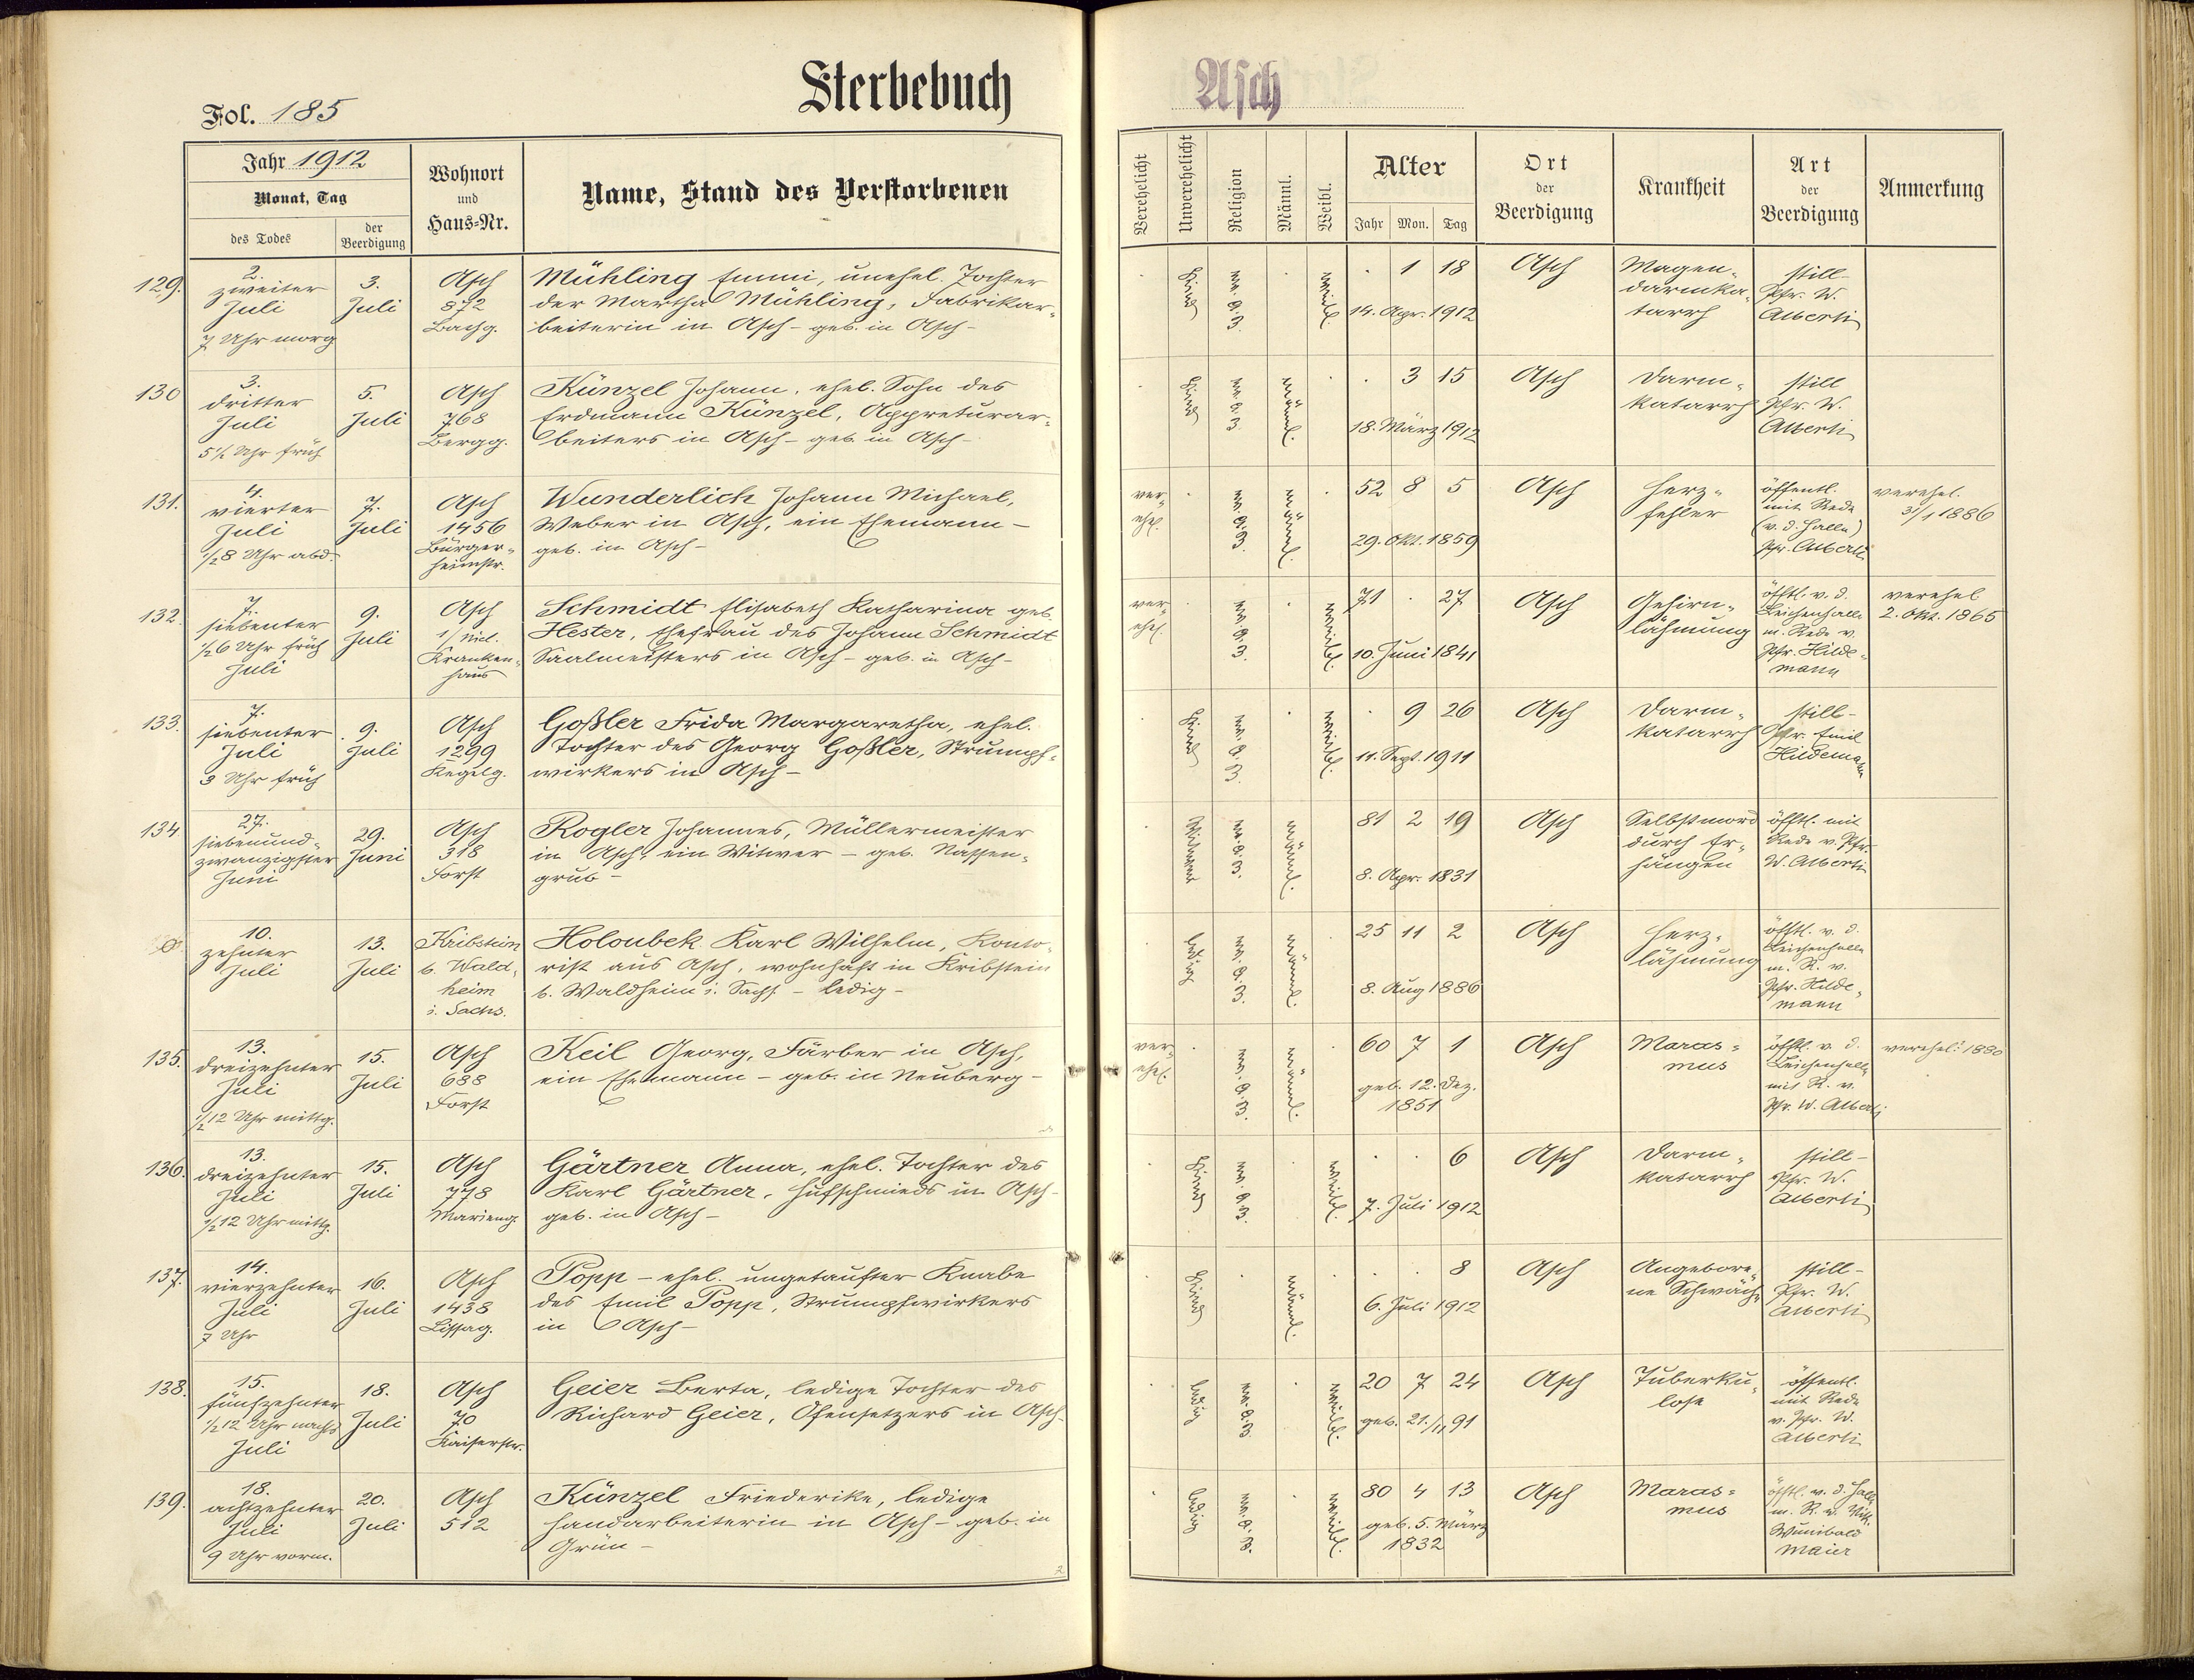 Sterbebuch
Asch
Fol. 185
Jahr 1912
Monat, Tag
des Todes
der Beerdigung
Wohnort
und
Haus-Nr.
Name, Stand des Verstorbenen
Verehelicht
Unverehelicht
Religion
Männl.
Weibl.
Alter
Jahr Mon. Tag
Ort
der
Beerdigung
Krankheit
Art
der
Beerdigung
Anmerkung
129.
2.
zweiter
Juli
7 Uhr morg
3.
Juli
Asch
872
Bachg.
Mühling Emmi, unehel. Tochter
der Martha Mühling, Fabrikar-
beiterin in Asch - geb. in Asch -
Kind
weibl.
1 18
14. Apr. 1912
Asch
Magen-
darmka-
tarrh
still -
Pfr. W.
Alberti
130
3.
dritter
Juli
5 1/2 Uhr früh
5.
Juli
Asch
768
Bergg.
Künzel Johann, ehel. Sohn des
Erdmann Künzel, Appreturar-
beiters in Asch - geb. in Asch -
Kind
männl.
3 15
18. März 1912
Asch
Darm-
katarrh
still
Pfr. W.
Alberti
131.
4.
vierter
Juli
1/2 8 Uhr abd.
7.
Juli
Asch
1456
Bürger-
heimstr.
Wunderlich Johann Michael,
Weber in Asch, ein Ehemann -
geb. in Asch -
ver-
ehel.
männl.
52 8 5
29. Okt. 1859
Asch
Herz-
fehler
öffentl.
mit Rede
(v. d. Halle)
Pfr. Alberti
verehel.
31/1 1886
132.
7.
siebenter
1/2 6 Uhr früh
Juli
9.
Juli
Asch
Kranken-
haus
Schmidt Elisabeth Katharina geb.
Hester, Ehefrau des Johann Schmidt
Saalmeisters in Asch - geb. in Asch -
ver-
ehel.
weibl.
71 . 27
10. Juni 1841
Asch
Gehirn-
lähmung
öfftl. v. d.
Leichenhalle
m. Rede v.
Pfr. Hilde-
mann
verehel
2. Okt. 1865
133.
7.
siebenter
Juli
3 Uhr früh
9.
Juli
Asch
1299
Kegelg.
Goßler Frida Margaretha, ehel.
Tochter des Georg Goßler, Strumpf-
wirkers in Asch -
Kind
weibl.
9 26
11. Sept. 1911
Asch
Darm-
katarrh
still -
Pfr. Emil
Hildemann
134
27.
siebenund-
zwanzigster
Juni
29.
Juni
Asch
318
Forst
Rogler Johannes, Müllermeister
in Asch, ein Witwer - geb. Nassen-
grub -
Witwer
männl.
81 2 19
8. Apr. 1831
Asch
Selbstmord
durch Er-
hängen
öfftl. mit
Rede v. Pfr.
W. Alberti
10.
zehnter
Juli
13.
Juli
Kribstein
b. Wald-
heim
i. Sachs.
Holoubek Karl Wilhelm, Konto-
rist aus Asch, wohnhaft in Kribstein
b. Waldheim i. Sachs. - ledig -
ledig
männl.
25 11 2
8. Aug 1886
Asch
Herz-
lähmung
öfftl. v. d.
Leichenhalle
m. R. v.
Pfr. Hilde-
mann
135.
13.
dreizehnter
Juli
1/2 12 Uhr mittg.
15.
Juli
Asch
688
Forst
Keil Georg, Färber in Asch,
ein Ehemann - geb. in Neuberg -
ver-
ehel.
männl.
60 7 1
geb. 12. Dez.
1851
Asch
Maras-
mus
öfftl. v. d.
Leichenhalle
mit R. v.
Pfr. W. Alberti
verehel. 1880
136.
13.
dreizehnter
Juli
1/2 12 Uhr mittg.
15.
Juli
Asch
778
Marieng.
Gärtner Anna, ehel. Tochter des
Karl Gärtner, Hufschmieds in Asch -
geb. in Asch -
Kind
weibl.
6
7. Juli 1912
Asch
Darm-
katarrh
still -
Pfr. W.
Alberti
137.
14.
vierzehnter
Juli
7 Uhr
16.
Juli
Asch
1438
Lissag.
Popp - ehel. ungetaufter Knabe
des Emil Popp, Strumpfwirkers
in Asch -
Kind
männl.
8
6. Juli 1912
Asch
Angebore-
ne Schwäche
still -
Pfr. W.
Alberti
138.
15.
fünfzehnter
1/2 12 Uhr nachts
Juli
18.
Juli
Asch
70
Kaiserstr.
Geier Berta, ledige Tochter des
Richard Geier, Ofensetzers in Asch -
ledig
weibl.
20 7 24
geb. 21./11 91
Asch
Tuberku-
lose
öffentl.
mit Rede
v. Pfr. W.
Alberti
139.
18.
achtzehnter
Juli
9 Uhr vorm.
20.
Juli
Asch
512
Künzel Friederike, ledige
Handarbeiterin in Asch - geb. in
Grün -
ledig
weibl.
80 4 13
geb. 5. März
1832
Asch
Maras-
mus
öfftl. v. d. Halle
m. R. v. Vik.
Wunibald
Maier